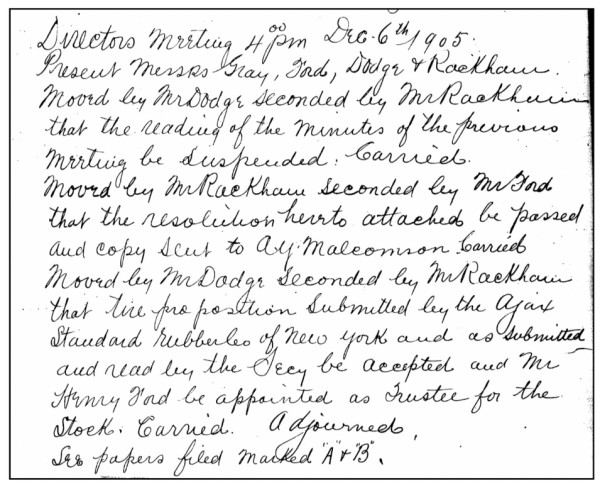 Directors Meeting 4 00 pm Dec. 6th 1905.
Present Messrs Gray, Ford, Dodge & Rackham.
Moved by Mr Dodge seconded by Mr Rackham
that the reading of the minutes of the previous
meeting be suspended. Carried.
Moved by Mr Rackham seconded by Mr Ford
that the resolution hereto attached be passed
and copy sent to A.Y. Malcomson. Carried
Moved by Mr Dodge seconded by Mr Rackham
that tire proposition submitted by the Ajax
Standard Rubber Co of New York and as submitted
and read by the Secy be accepted and Mr
Henry Ford be appointed as Trustee for the
Stock. Carried. Adjourned.
See papers filed marked "A" & "B".